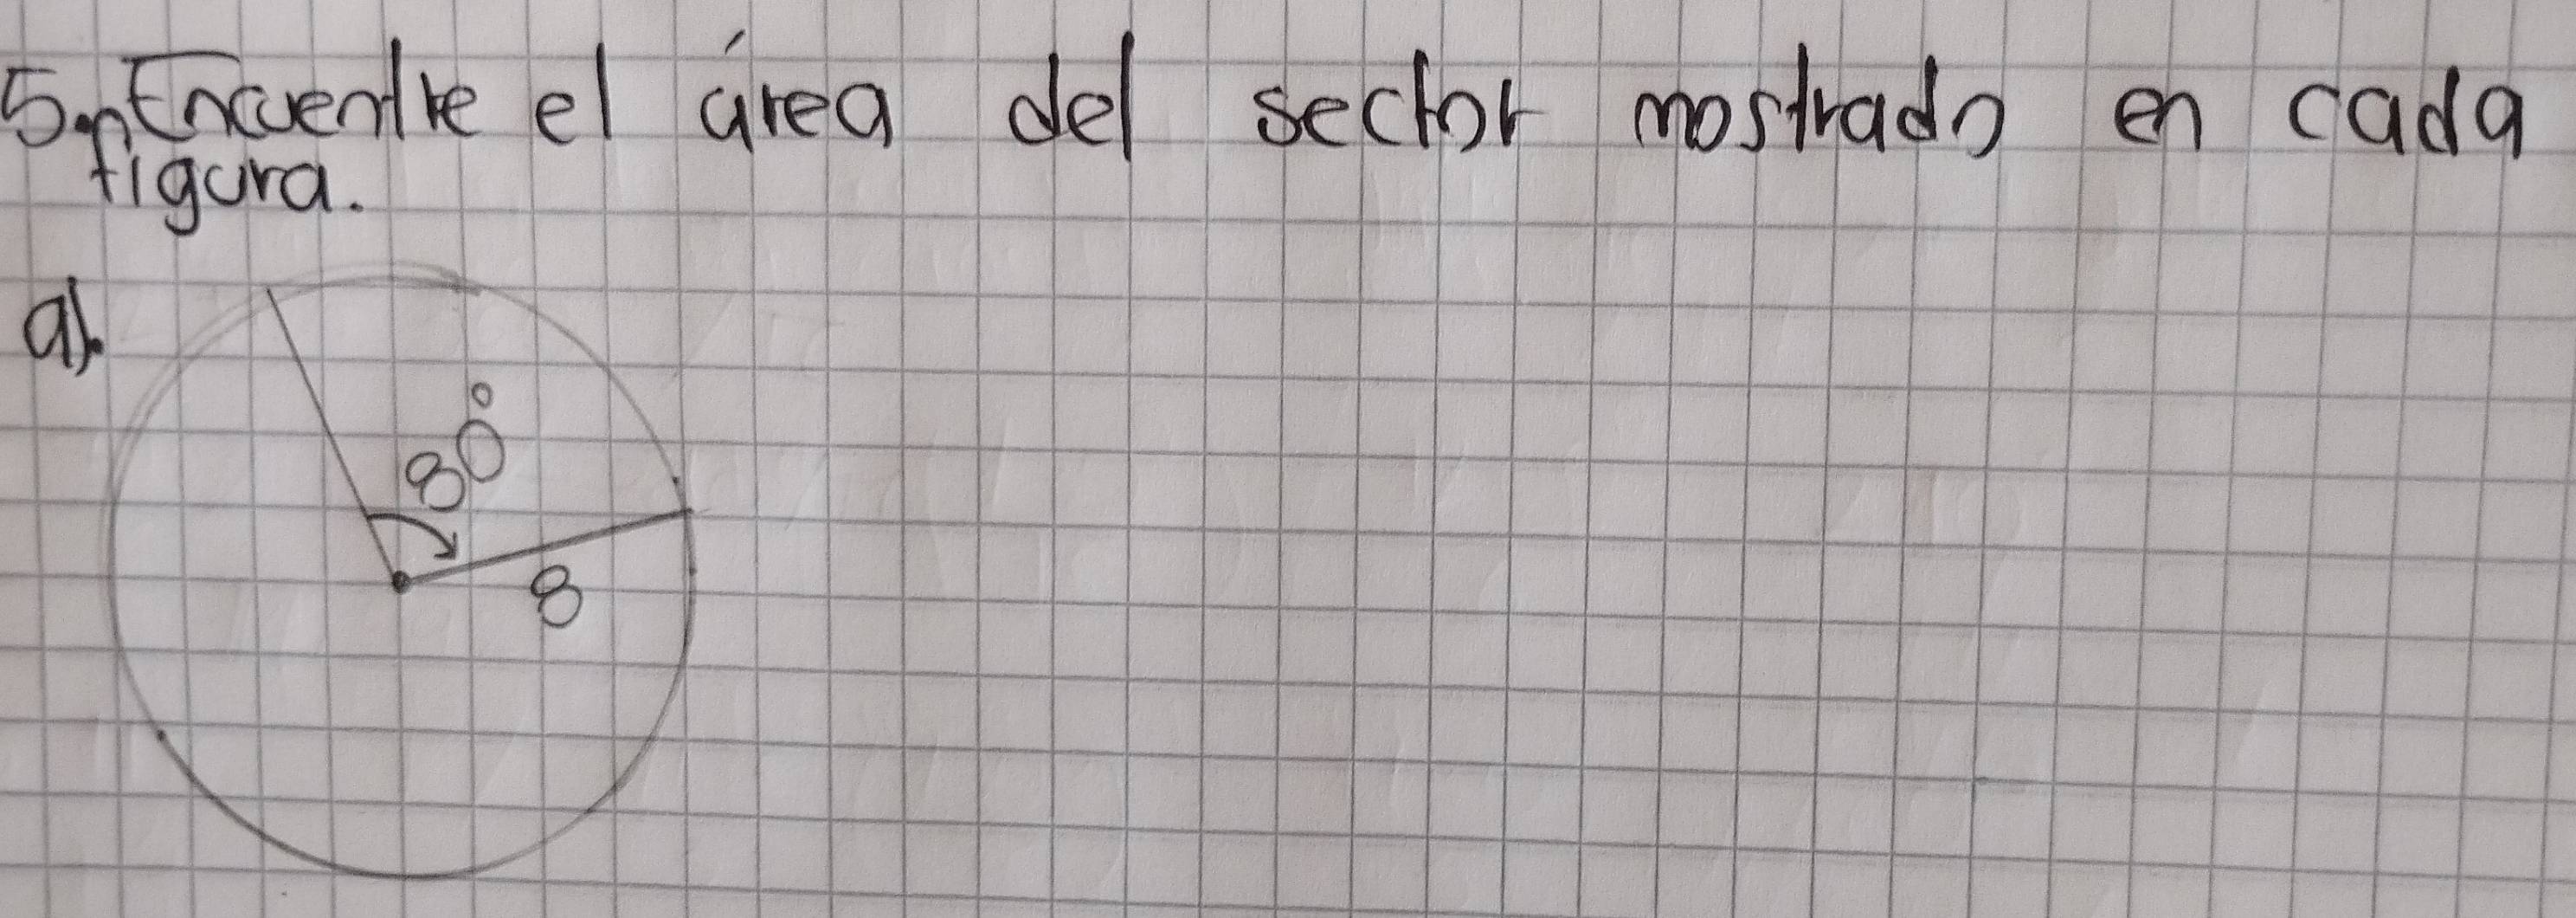 5. Encuentre el área del sector mostrado en cada
figura.
a).
80°
8